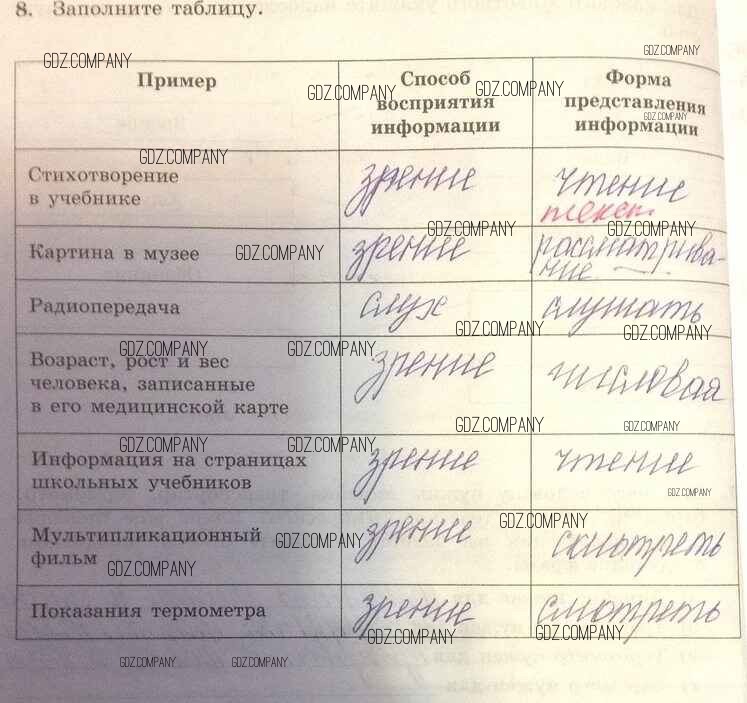 8. Заполните таблицу.
GDZ.COMPANY
GDZ.COMPANY
Пример
Способ восприятия информации
Форма представления информации
GDZ.COMPANY
GDZ.COMPANY
GDZ.COMPANY
GDZ.COMPANY
Стихотворение
в учебнике
зрение
чтение
текст.
GDZ.COMPANY
GDZ.COMPANY
Картина в музее
GDZ.COMPANY
зрение
рассматрива-
ние
Радиопередача
слух
слушать
GDZ.COMPANY
GDZ.COMPANY
GDZ.COMPANY
GDZ.COMPANY
Возраст, рост и вес
человека, записанные
в его медицинской карте
зрение
числовая
GDZ.COMPANY
GDZ.COMPANY
GDZ.COMPANY
GDZ.COMPANY
Информация на страницах
школьных учебников
зрение
чтение
GDZ.COMPANY
GDZ.COMPANY
Мультипликационный
фильм
GDZ.COMPANY
зрение
смотреть
GDZ.COMPANY
Показания термометра
зрение
смотреть
GDZ.COMPANY
GDZ.COMPANY
GDZ.COMPANY
GDZ.COMPANY